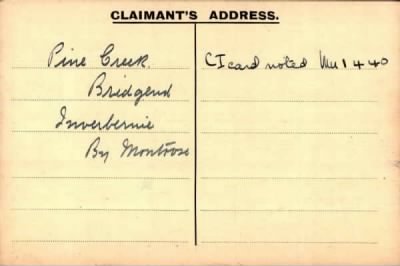 CLAIMANT'S ADDRESS.
Pine Creek.
Bridgend
Inverbernie
By Montrose
CI card noted 1 4 40